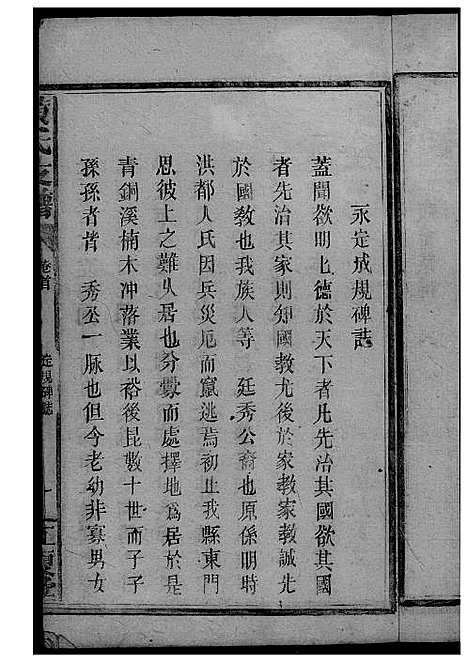 永定成規碑誌
蓋聞欲明上德於天下者凡先治其國欲其國
者先治其家則知國教尤後於家教家教誠先
於國教也我族人等　廷秀公裔也原係明時
洪都人氏因兵災厄而竄逃焉初止我縣東門
思彼上之難以居也分爨而處擇地為居於是
青銅溪楠木冲落業以裕後昆數十世而子子
孫孫者皆　秀丞一脉也但今老幼非寡男女
氏支譜
卷首
定規碑誌